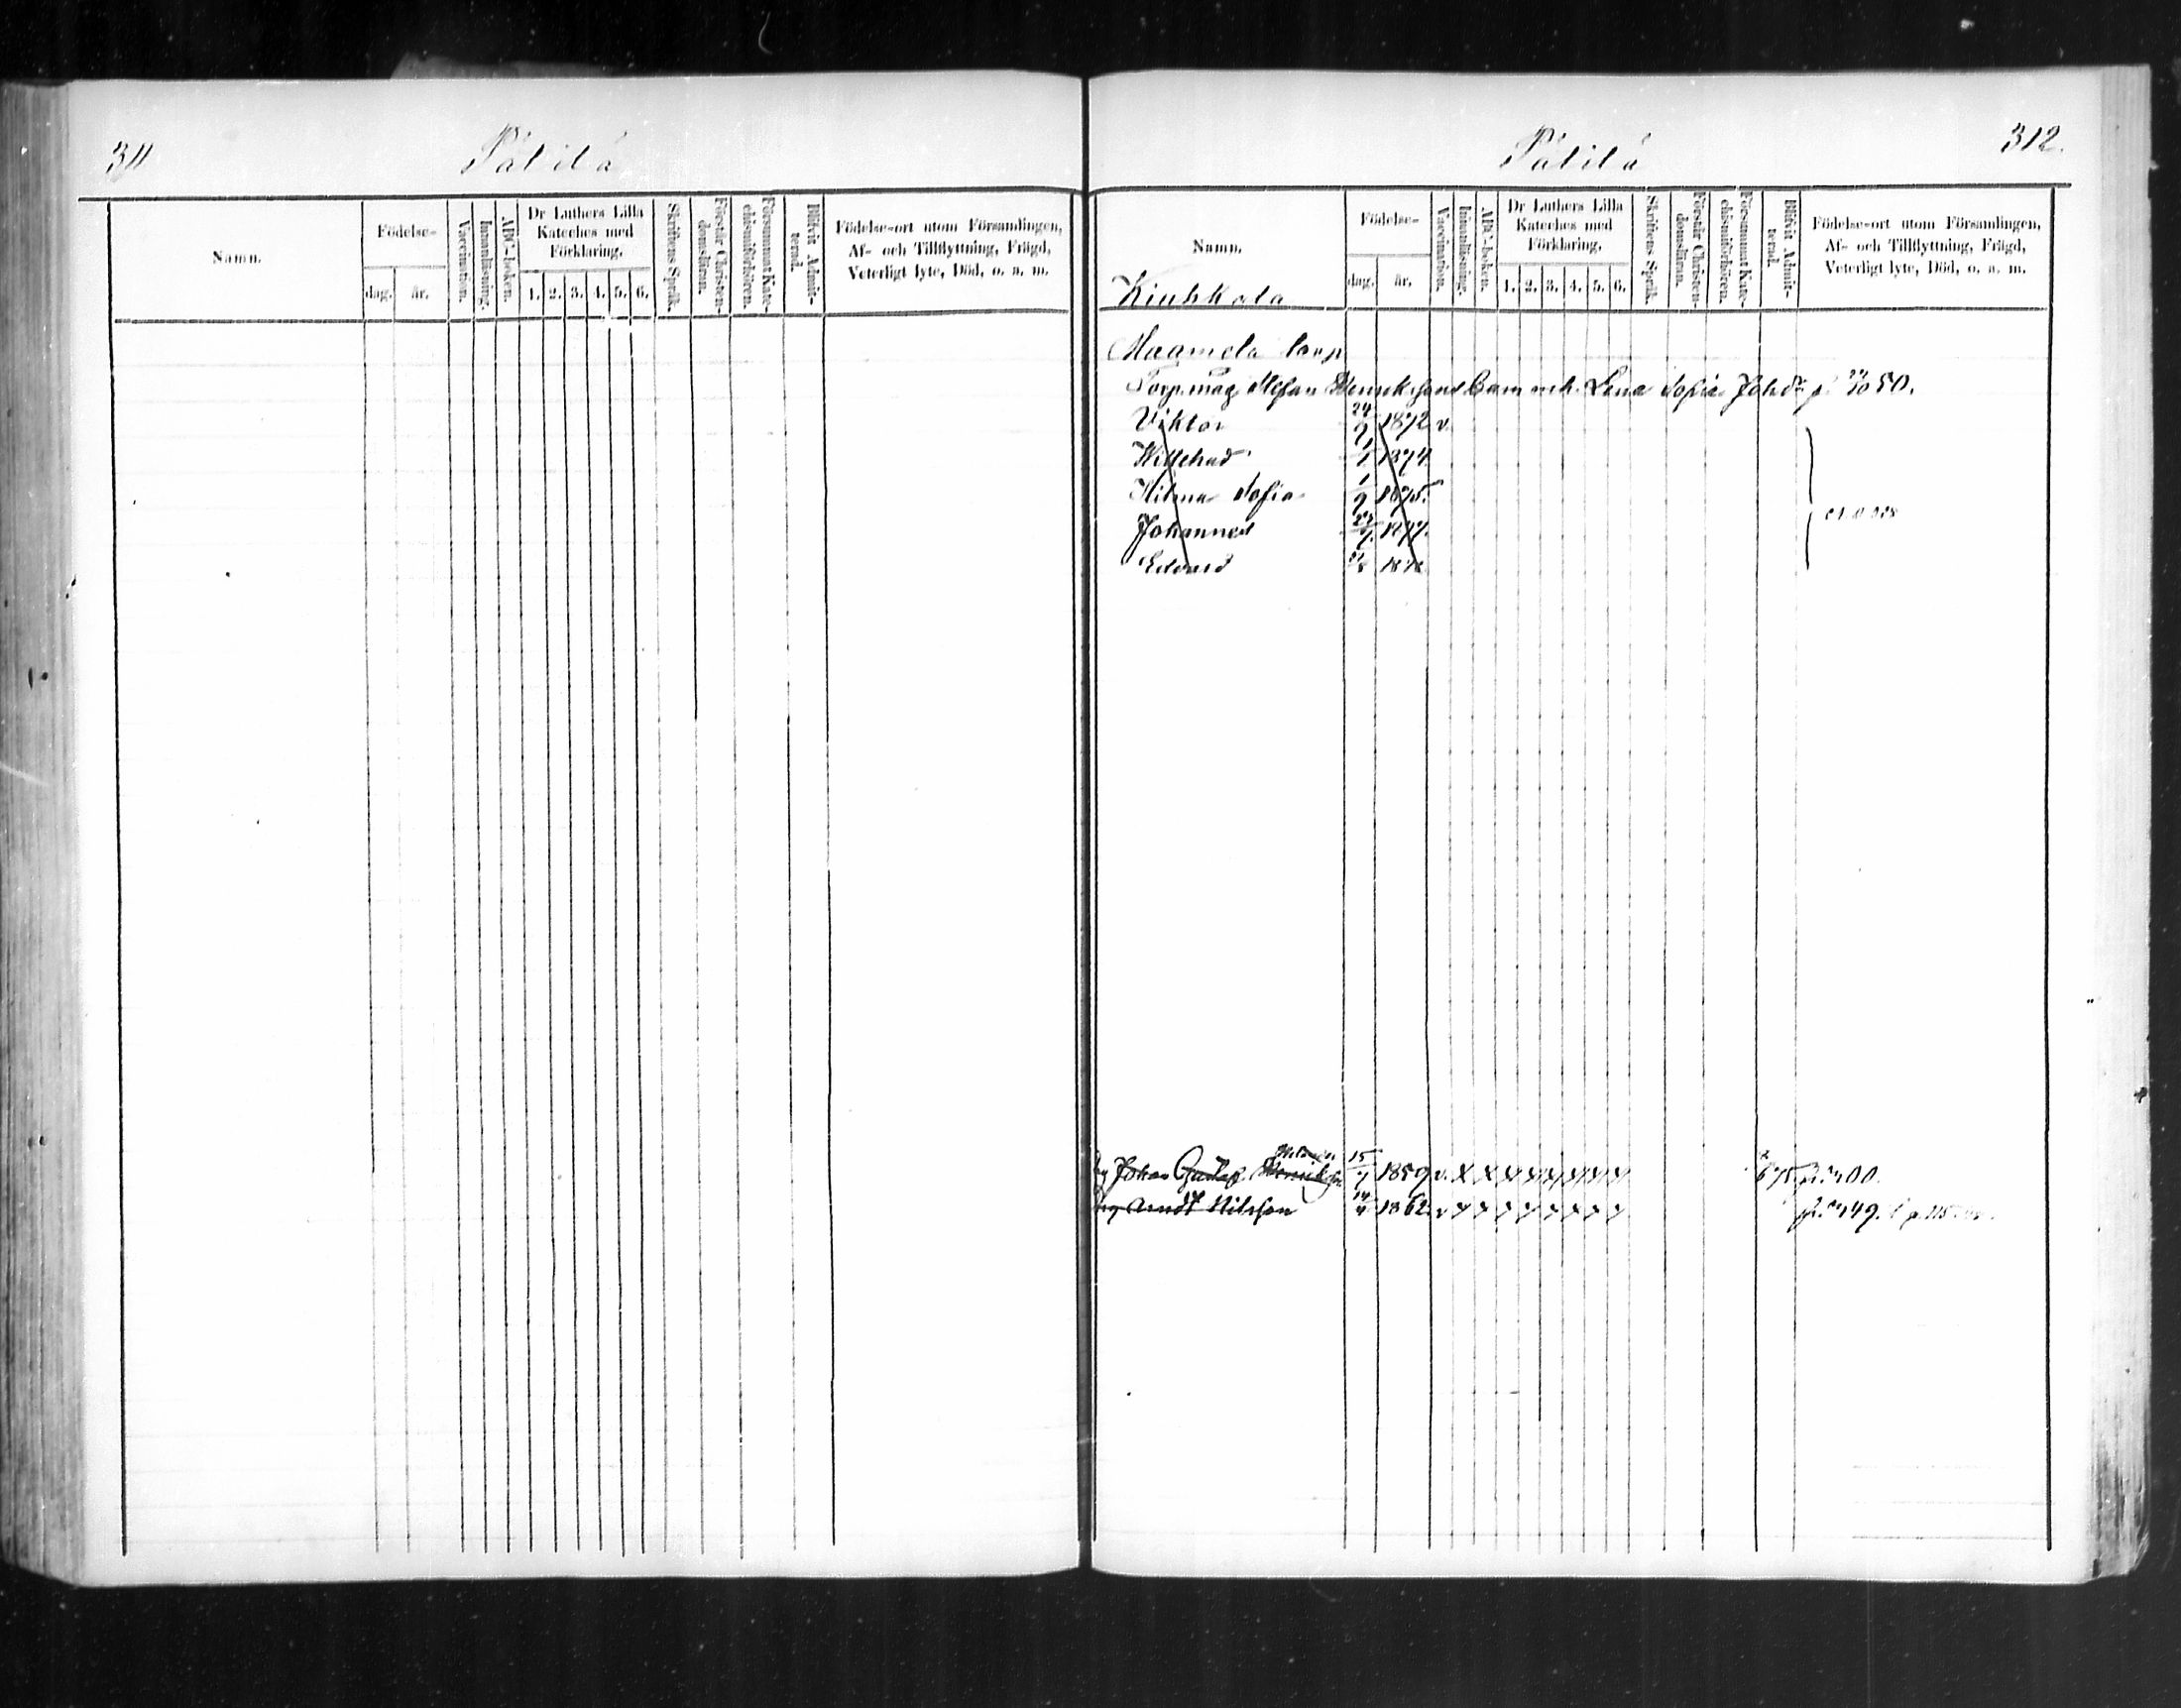 311
Pätilä
Namn.
Födelse-
dag.
år.
Vaccination.
Innanläsning.
ABC-boken.
Dr Luthers Lilla
Kateches med
Förklaring.
1. 2. 3. 4. 5. 6.
Skriftens Språk.
Förstår Christen-
domsläran.
Försummat Kate-
chismiförhören.
Blifvit Admit-
terad.
Födelse-ort utom Församlingen,
Af- och Tillflyttning, Frägd,
Veterligt lyte, Död, o. a. m.
312.
Pätilä
Namn.
Födelse-
dag.
år.
Vaccination.
Innanläsning.
ABC-boken.
Dr Luthers Lilla
Kateches med
Förklaring.
1. 2. 3. 4. 5. 6.
Skriftens Språk.
Förstår Christen-
domsläran.
Försummat Kate-
chismiförhören.
Blifvit Admit-
terad.
Födelse-ort utom Församlingen,
Af- och Tillflyttning, Frägd,
Veterligt lyte, Död, o. a. m.
Kiukkala
Maamela torp
Torp.mag Stefan Henrikssons Barn och Lena Sofia
Viktor 24/9 1872 v.
Willehad 1/1 1874.
Hilma Sofia 1/9 1875.
Johannes 1877.
Edvard 1878
Johan Gustaf Henriksson 15 1859 v. x x x x x x x x
Arndt Nilsson 14 1862 v x x x x x x x x